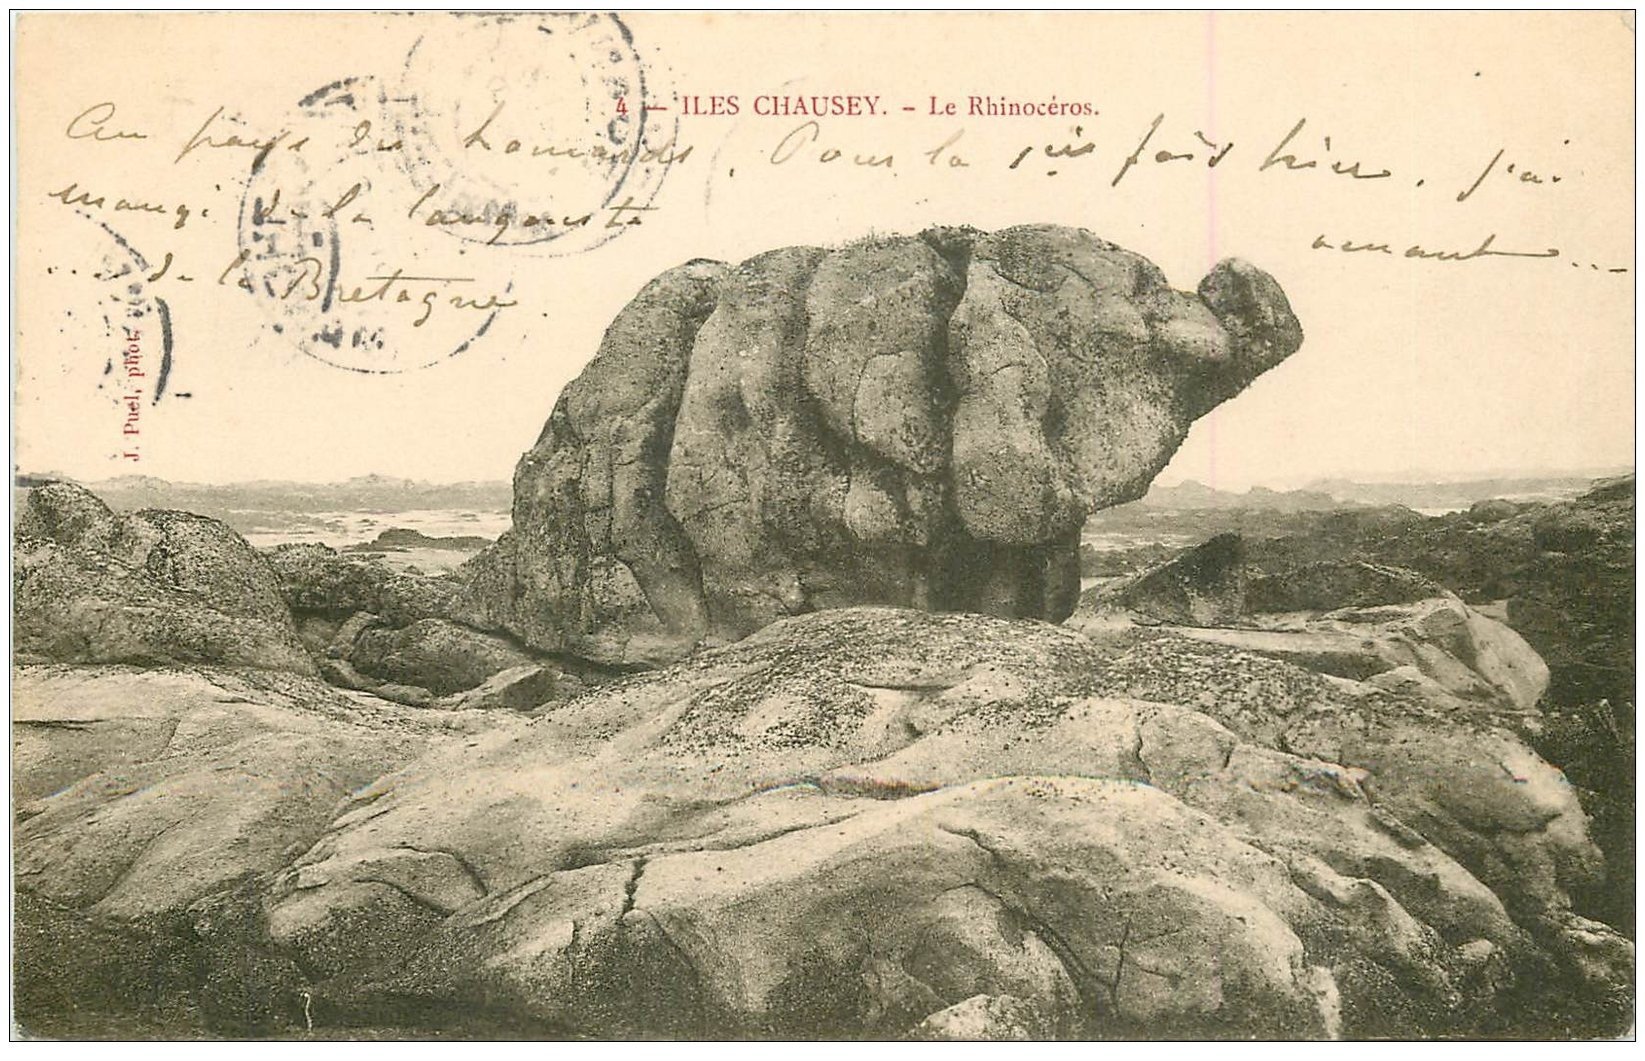 4 — ILES CHAUSEY. – Le Rhinocéros.
Au pays des homards. Pour la 1ère fois hier, j'ai
mangé de la langouste
venant...
... de la Bretagne.
J. Puel, phot.